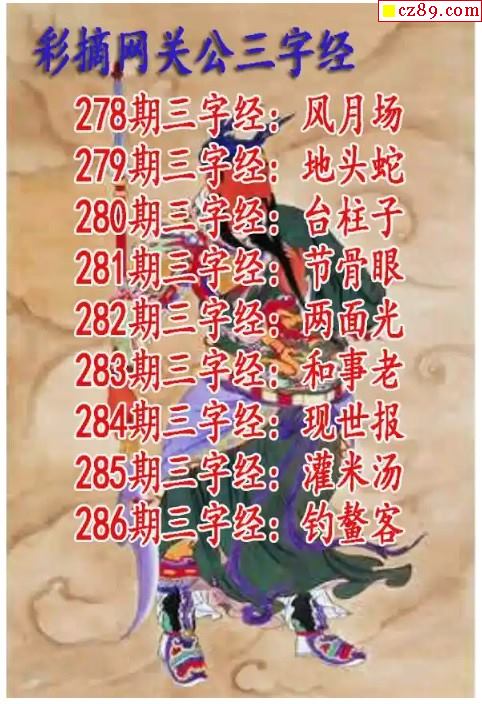 cz89.com
彩摘网关公三字经
278期三字经：风月场
279期三字经：地头蛇
280期三字经：台柱子
281期三字经：节骨眼
282期三字经：两面光
283期三字经：和事老
284期三字经：现世报
285期三字经：灌米汤
286期三字经：钓鳌客